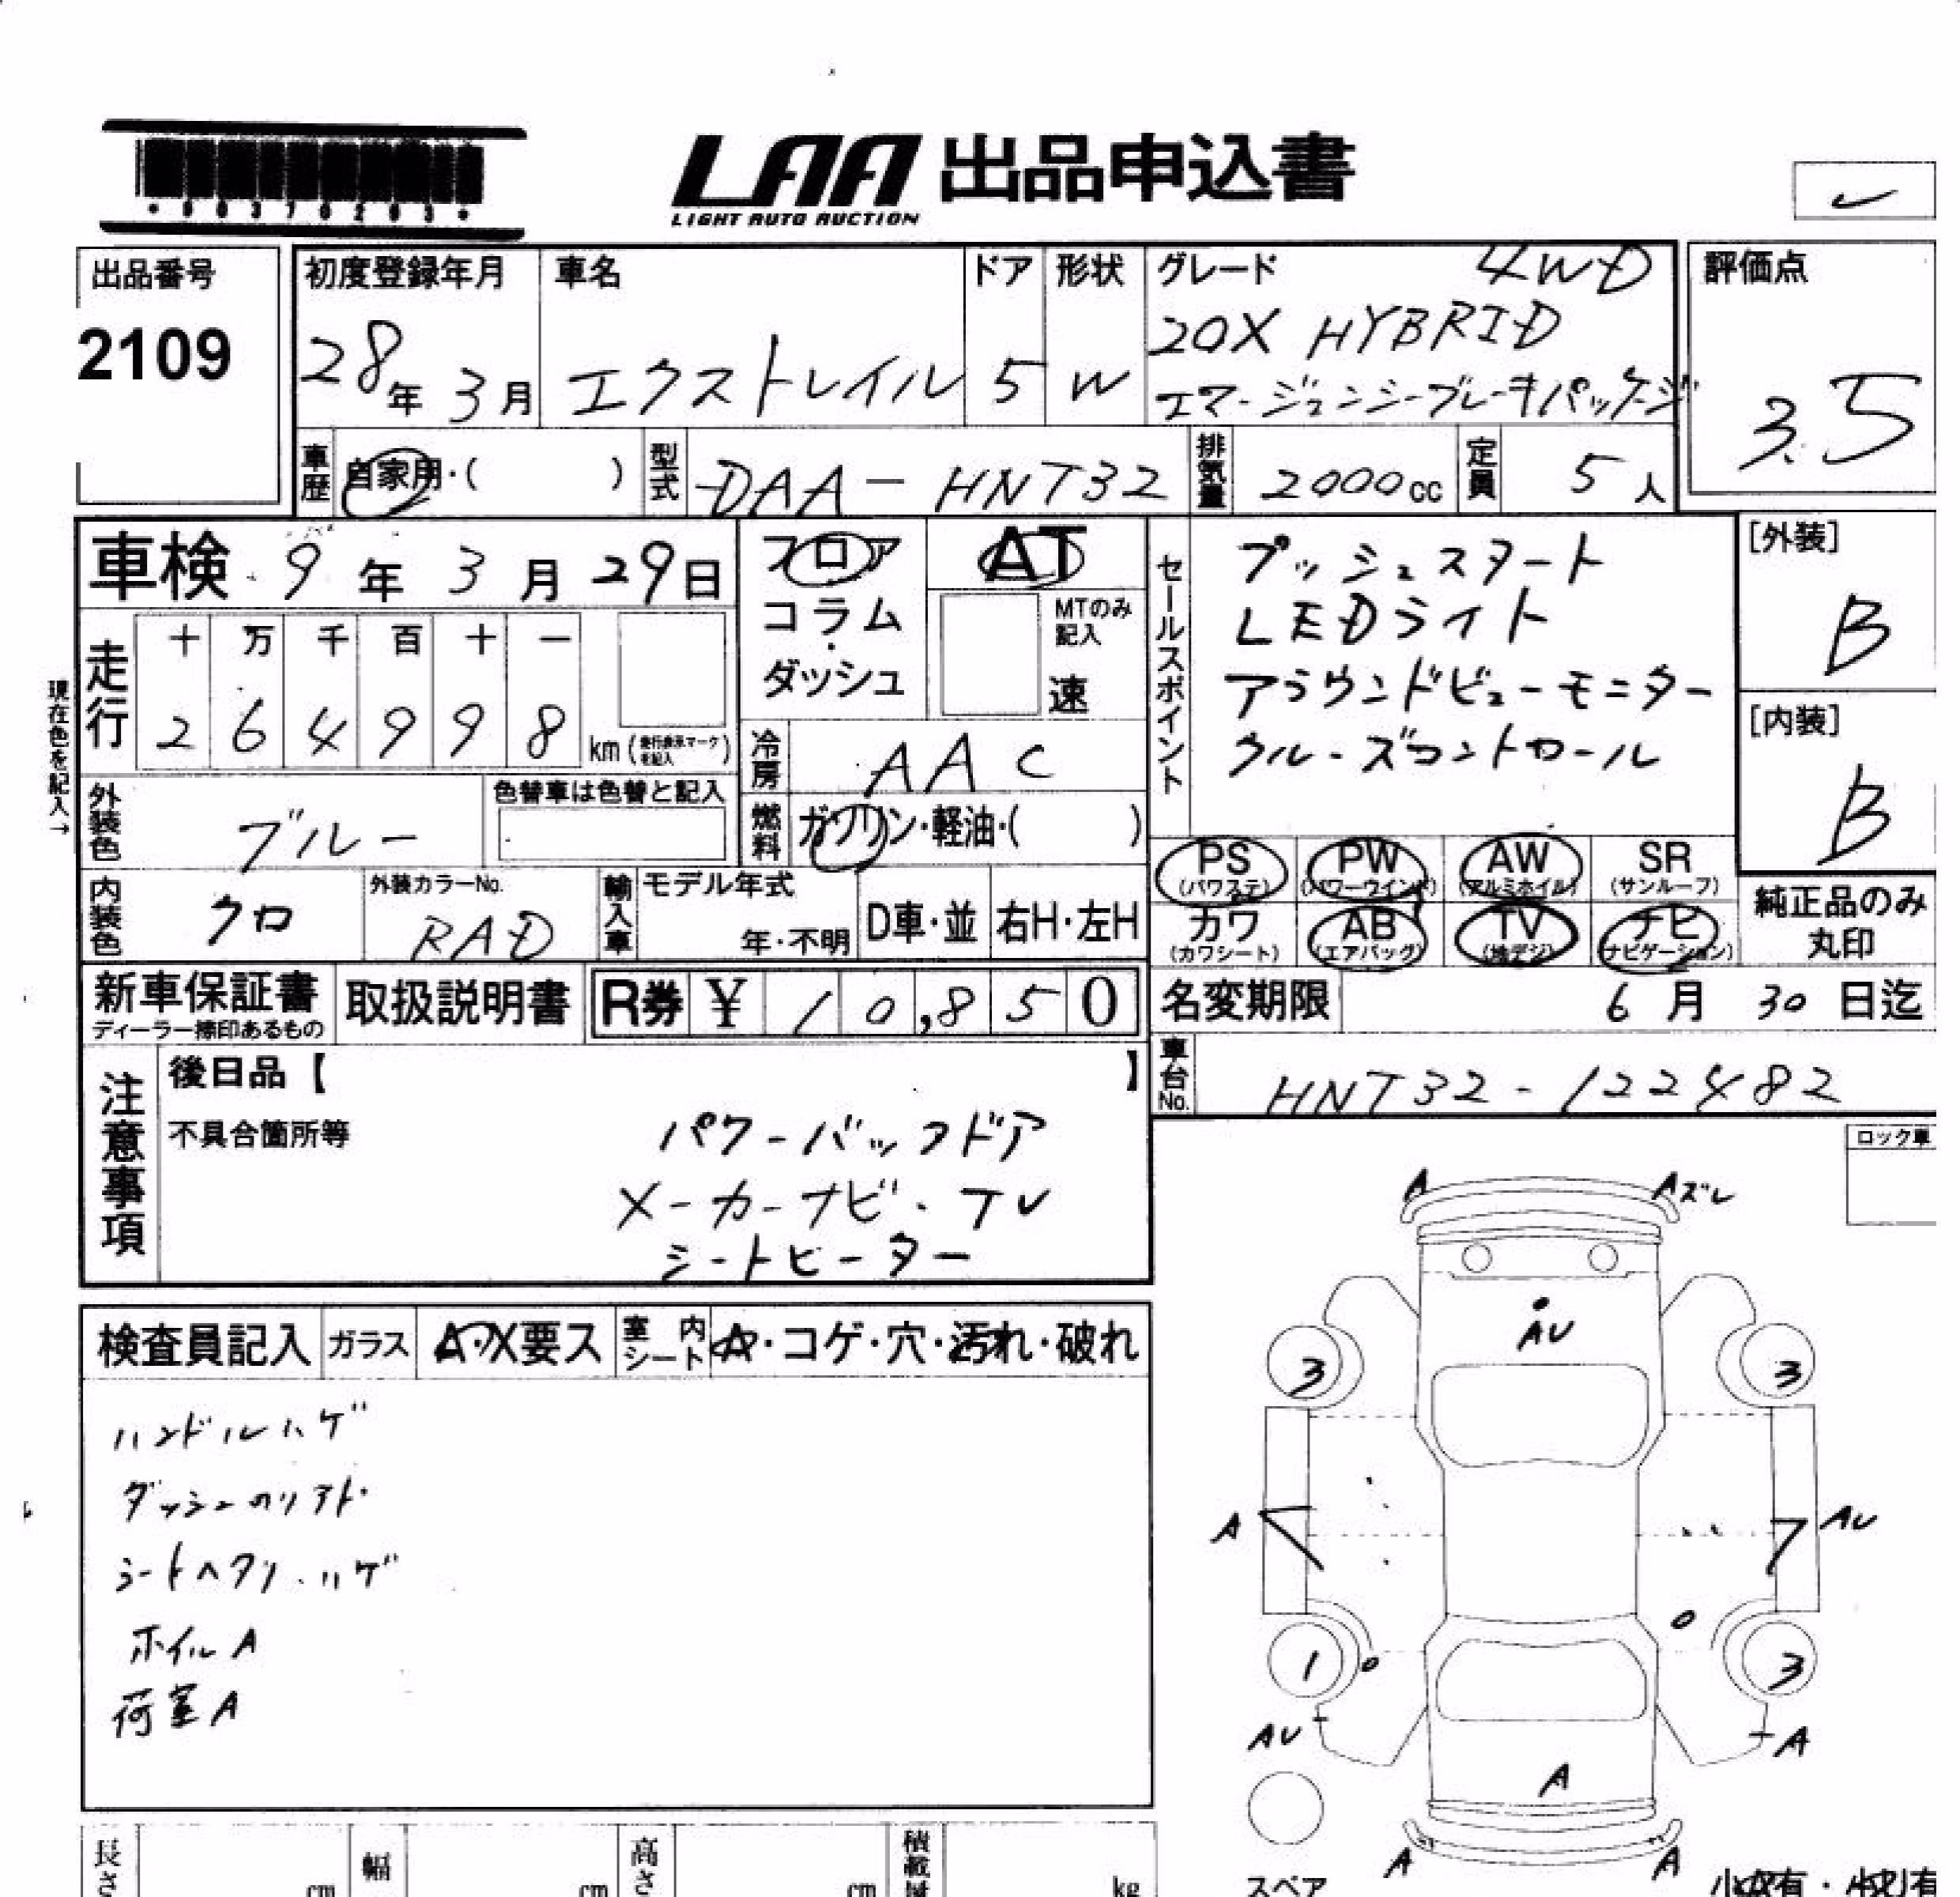 *90370203*
LAA 出品申込書
LIGHT AUTO AUCTION
出品番号
2109
初度登録年月
28年 3月
車名
エクストレイル
ドア
5
形状
W
グレード 4WD
20X HYBRID
エマージェンシーブレーキパッケージ
評価点
3.5
車歴 自家用・( )
型式 DAA-HNT32
排気量 2000cc
定員 5人
車検 9年 3月 29日
フロア
コラム・
ダッシュ
AT
MTのみ記入
速
セールスポイント
プッシュスタート
LEDライト
アラウンドビューモニター
クルーズコントロール
[外装]
B
[内装]
B
現在色を記入→
走行
十 万 千 百 十 一
2 6 4 9 9 8 km (走行表示マークを記入)
冷房 AAC
外装色 ブルー
色替車は色替と記入
燃料 ガソリン・軽油・( )
内装色 クロ
外装カラーNo.
RAD
輸入車
モデル年式
年・不明
D車・並
右H・左H
PS (パワステ)
PW (パワーウインド)
AW (アルミホイル)
SR (サンルーフ)
カワ (カワシート)
AB (エアバッグ)
TV (地デジ)
ナビ (ナビゲーション)
純正品のみ
丸印
新車保証書
ディーラー捺印あるもの
取扱説明書
R券 ¥ 10,850
名変期限 6月 30日迄
車台No. HNT32-122482
注意事項
後日品【 】
不具合箇所等
パワーバックドア
メーカーナビ・TV
シートヒーター
ロック車
検査員記入
ガラス A・X要ス
室内シート A・コゲ・穴・汚れ・破れ
ハンドルハゲ
ダッシュのリアト
シートヘタリ・ハゲ
ホイルA
荷室A
A
Aズレ
AU
3
3
A
AU
1
3
AU
A
A
A
A
スペア
長さ cm
幅 cm
高さ cm
積載量 kg